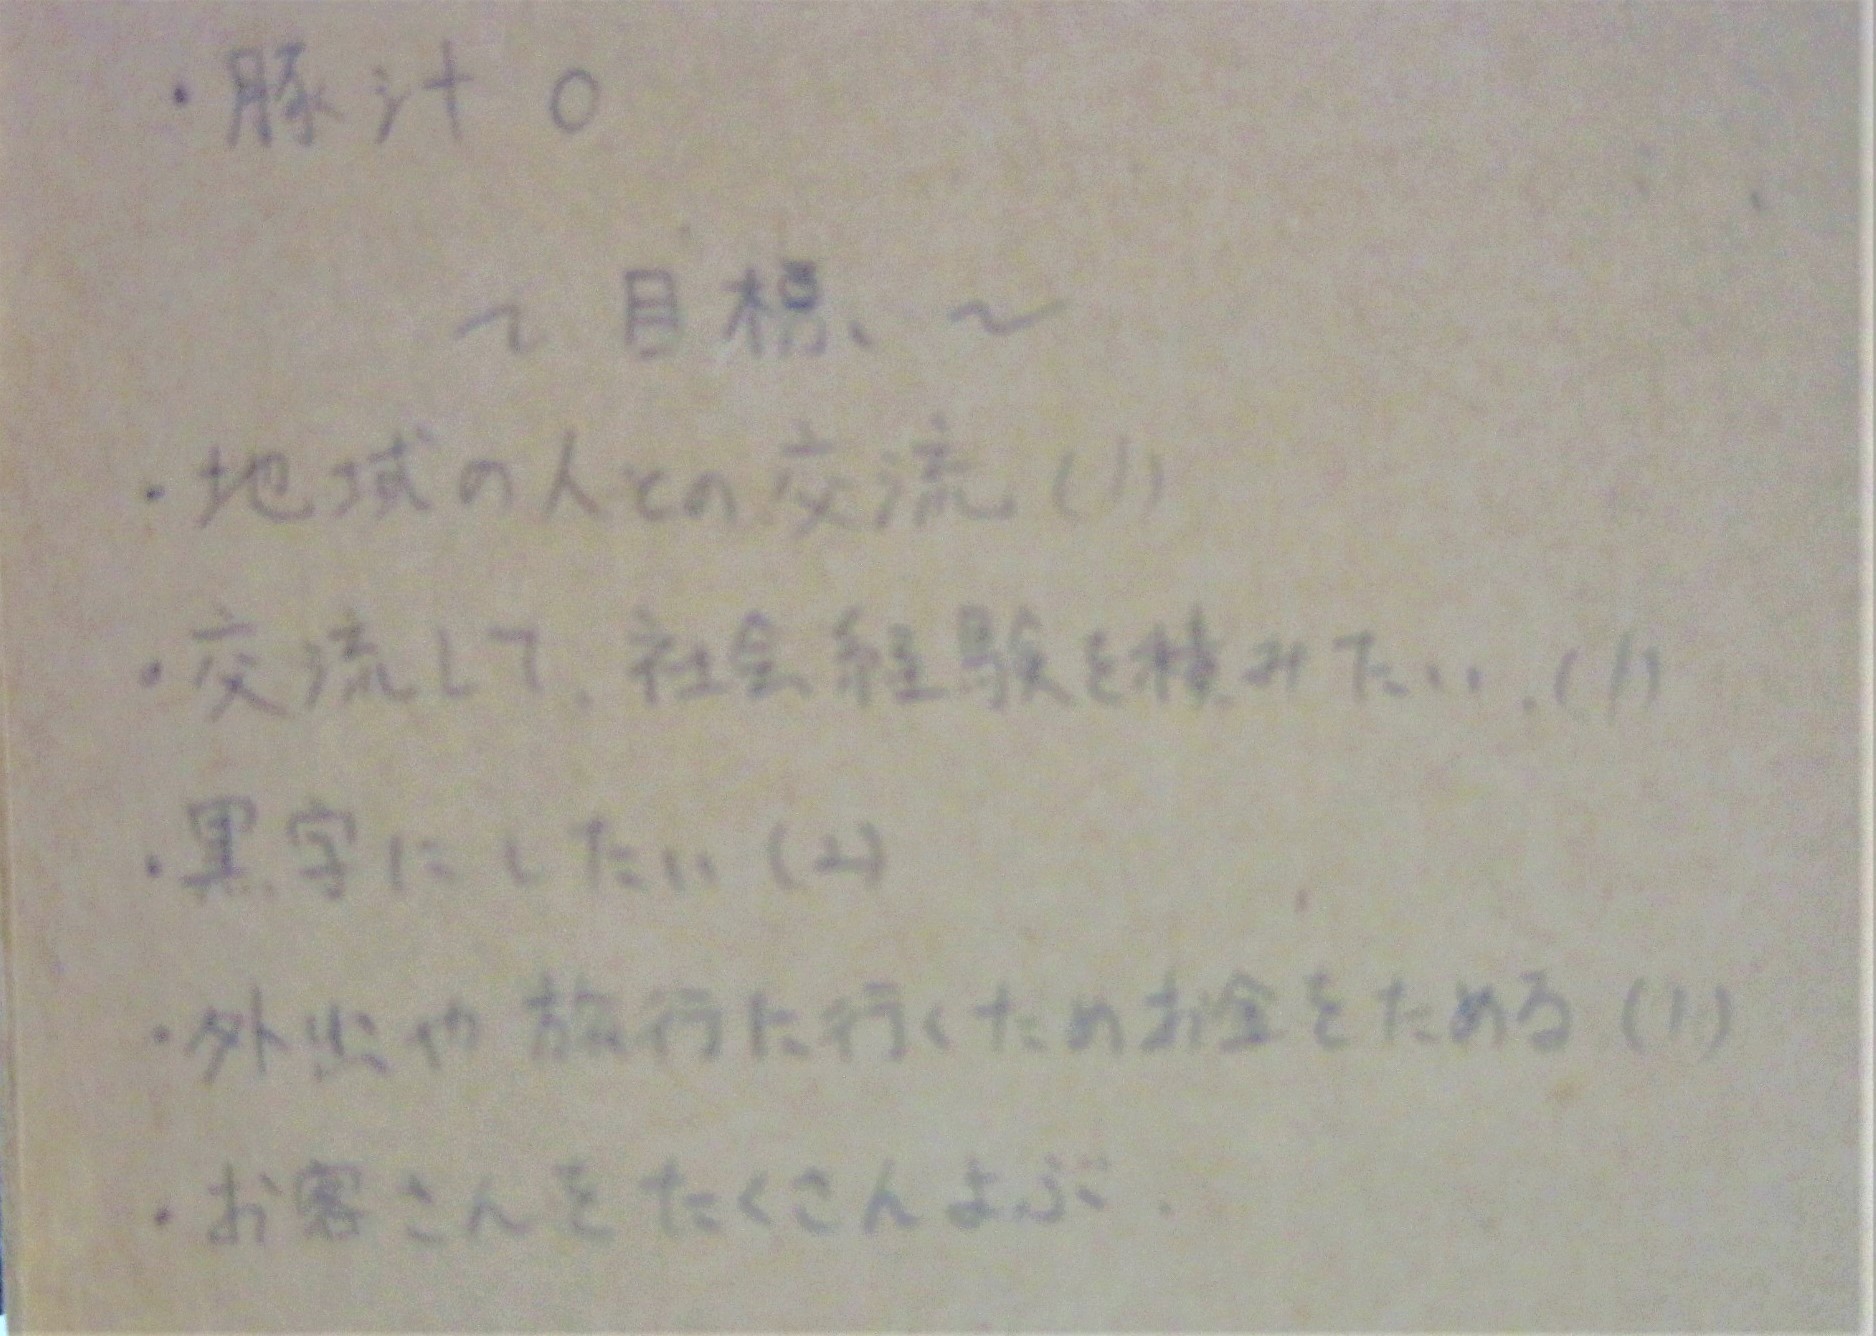 ・豚汁 0
～目標～
・地域の人との交流(1)
・交流して、社会経験を積みたい.(1)
・黒字にしたい(2)
・外出や旅行に行くためお金をためる(1)
・お客さんをたくさんよぶ.